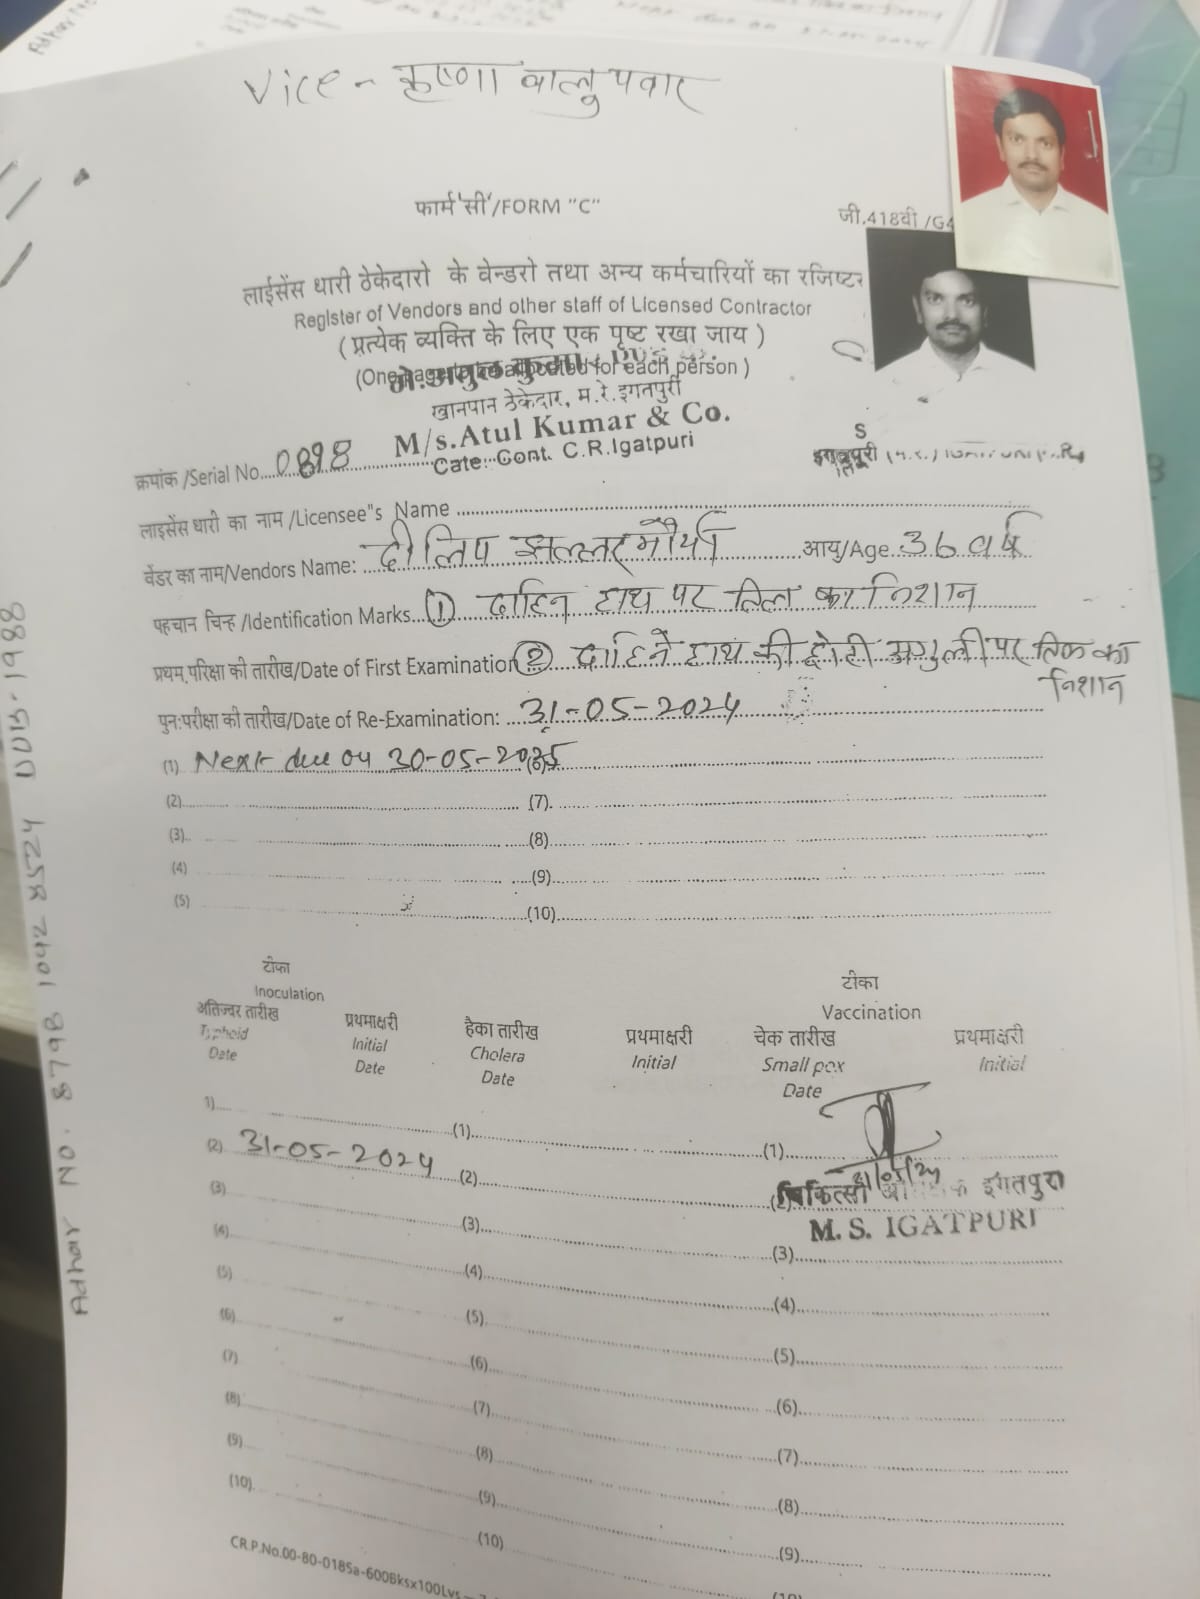 Adhar
Vice - कृष्णा बालु पवार
फार्म 'सी'/FORM "C"
जी.418बी /G4
लाईसेंस धारी ठेकेदारो के वेन्डरो तथा अन्य कर्मचारियों का रजिष्टर
Register of Vendors and other staff of Licensed Contractor
(प्रत्येक व्यक्ति के लिए एक पृष्ट रखा जाय )
for each person )
खानपान ठेकेदार, म.रे.इगतपुरी
M/s.Atul Kumar & Co.
Cate: Cont. C.R.Igatpuri
क्रमांक /Serial No....0898
S
इगतपुरी
लाइसेंस धारी का नाम /Licensee"s Name
वेंडर का नाम/Vendors Name: दीलिप झल्लर मौर्या आयु/Age 36 वर्ष
पहचान चिन्ह /Identification Marks. (1) दाहिन हाथ पर तिल का निशान
प्रथम परिक्षा की तारीख/Date of First Examination (2) दाहिने हाथ की छोटी अगुली पर तिल का
निशान
पुन:परीक्षा की तारीख/Date of Re-Examination: 31-05-2024
(1) Next due on 30-05-2025
(2) (7)
(3) (8)
(4) (9)
(5) (10)
टीका
Inoculation
टीका
Vaccination
अतिज्वर तारीख प्रथमाक्षरी हैका तारीख प्रथमाक्षरी चेक तारीख प्रथमाक्षरी
Typhoid Initial Cholera Initial Small pox Initial
Date Date Date Date
1) (1) (1)
(2) 31-05-2024 (2) (2)
31/05/24
इगतपुरी
M. S. IGATPURI
(3) (3) (3)
(4) (4) (4)
(5) (5) (5)
(6) (6) (6)
(7) (7) (7)
(8) (8) (8)
(9) (9) (9)
(10) (10) (10)
CR.P.No.00-80-0185a-600Bksx100Lvs
Adhar No. 8798 1042 8524 DOB-1988